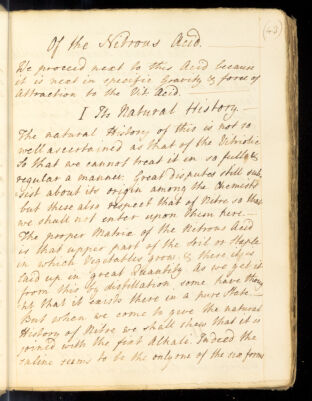 43
Of the Nitrous Acid.
We proceed next to this Acid because
it is next in specific Gravity & force of
Attraction to the Vit: Acid.
I Its Natural History.
The natural History of this is not so
well ascertained as that of the Vitriolic
So that we cannot treat it in so full &
regular a manner. Great disputes still sub
sist about its origin among the Chemists
but these also respect that of Nitre so that
we shall not enter upon them here.
The proper Matrix of the Nitrous Acid
is that upper part of the Soil or Staple
in which Vegetables grow & there it is
laid up in great Quantity. As we get it
from this by distillation, some have thou
ht that it exists there in a pure State.
But when we come to give the natural
History of Nitre we shall shew that it is
joined with the Alkali. Indeed the
saline seems to be the only one of the forms